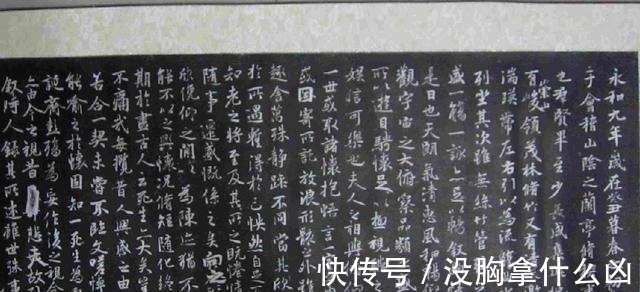 永和九年歲在癸丑暮春
于會稽山陰之蘭亭脩
也羣賢畢至少長咸集
有崇山峻領茂林脩竹又有
湍暎帶左右引以為流觴
列坐其次雖無絲竹管
盛一觴一詠亦足以暢敘
是日也天朗氣清惠風
觀宇宙之大俯察品類
所以遊目騁懷足以極視
娛信可樂也夫人之相與
一世或取諸懷抱悟言一
或因寄所託放浪形骸之外雖
趣舍萬殊靜躁不同當其欣
於所遇暫得於己怏然自足
知老之將至及其所之既惓情
隨事遷感慨係之矣向之
欣俛仰之閒以為陳迹猶不
能不以之興懷況脩短隨化終
期於盡古人云死生亦大矣豈
不痛哉每攬昔人興感之由
若合一契未嘗不臨文嗟悼
能喻之於懷固知一死生為
誕齊彭殤為妄作後之視今
亦由今之視昔悲夫故列
敘時人錄其所述雖世殊事
快传号/没胸拿什么凶